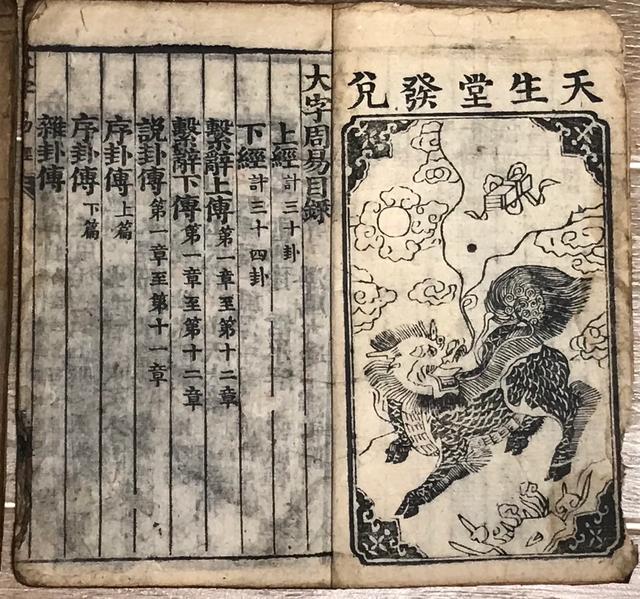 天生堂發兌
大字周易目錄
上經 計三十卦
下經 計三十四卦
繫辭上傳 第一章至第十二章
繫辭下傳 第一章至第十二章
說卦傳 第一章至第十一章
序卦傳 上篇
序卦傳 下篇
雜卦傳